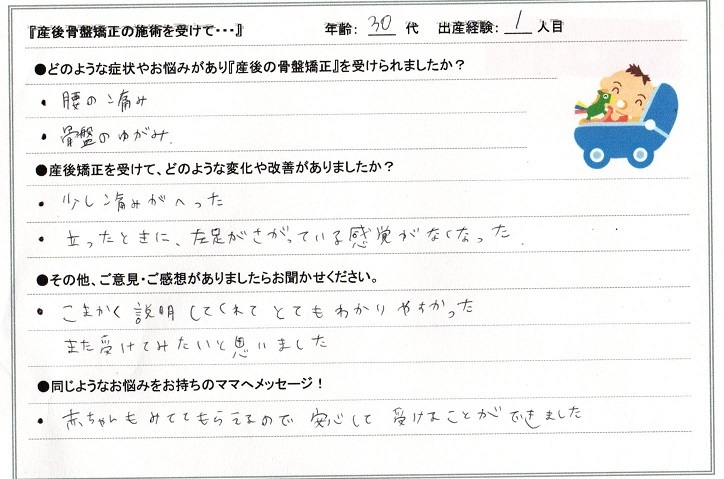 『産後骨盤矯正の施術を受けて・・・』 年齢： 30 代 出産経験： 1 人目
●どのような症状やお悩みがあり『産後の骨盤矯正』を受けられましたか？
・腰の痛み
・骨盤のゆがみ.
●産後矯正を受けて、どのような変化や改善がありましたか？
・少し痛みがへった
・立ったときに、左足がさがっている感覚がなくなった.
●その他、ご意見・ご感想がありましたらお聞かせください。
・こまかく説明してくれてとてもわかりやすかった
また受けてみたいと思いました
●同じようなお悩みをお持ちのママへメッセージ！
・赤ちゃんもみててもらえるので安心して受けることができました